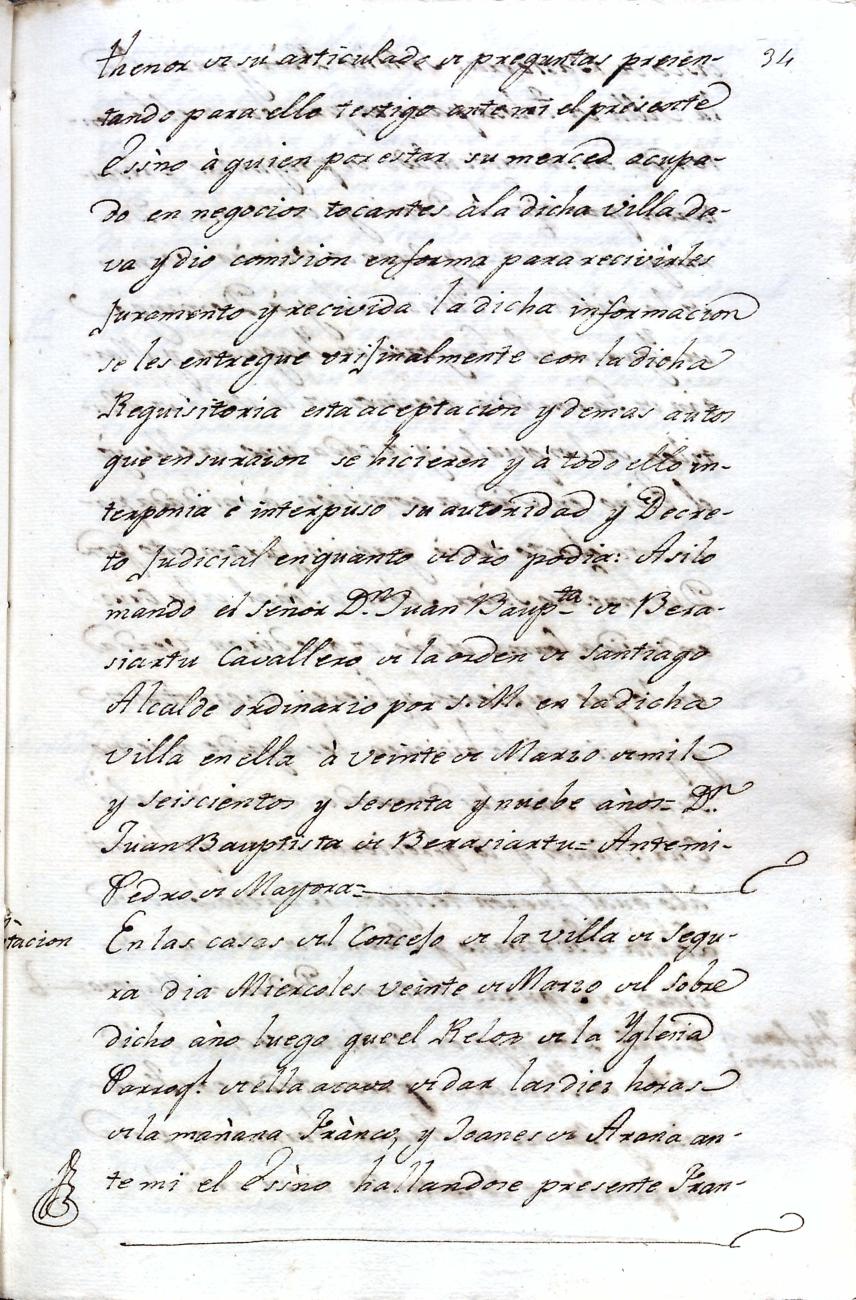 34
thenor de su articulado de preguntas presen-
tando para ello testigo ante mi el presente
Essno à quien por estar su merced acupa-
do en negocios tocantes àla dicha villa da-
va y dio comision enforma para recivirles
Juramento y recivida la dicha informacion
se les entregue orijinalmente con la dicha
Requisitoria esta aceptacion y demas autos
que en su raçon se hicieren y à todo ello in-
terponia è interpuso su autoridad y Decre-
to Judicial enquanto de dro podia: Asilo
mando el señor Dn Juan Baupta de Bera-
siartu Cavallero de la orden de Santiago
Alcalde ordinario por S. M. en la dicha
villa en ella à veinte de Marzo de mil
y seiscientos y sesenta y nuebe años= Dn
Juan Bauptista de Berasiartu= Ante mi-
Pedro de Mayora=
tacion
En las casas del Concejo de la villa de Segu-
ra dia Miercoles veinte de Marzo del sobre
dicho año luego que el Relox de la Yglesia
Parroql de ella acavo de dar las diez horas
de la mañana Franco y Joanes de Arana an-
te mi el Essno hallandose presente Fran-